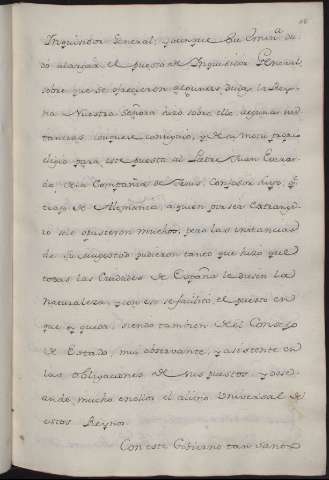 Inquisidor General; y aunque Su Emin.ª du
dó alargar el puesto de Inquisidor General,
sobre que se ofrecieron algunas dudas la Rey
na Nuestra Señora hizo sobre ello algunas ins
tancias, con que lo consiguio, y de su motu proprio
eligio para este puesto al Padre Juan Everar
do, de la Compañia de Jesus, Confesor suyo, q̃
trajo de Alemania, a quien por ser Extrange
ro se le opusieron muchos, pero las instancias
de Su Magestad pudieron tanto que hizo que
todas las Ciudades de España le diesen la
naturaleza, y con eso se facilitó el puesto en
que oy queda, siendo tambien del Consejo
de Estado, mui observante, y asistente en
las obligaciones de sus puestos, y dese
ando mucho en ellos el alivio Universal de
estos Reynos.
Con este Govierno tan Santo